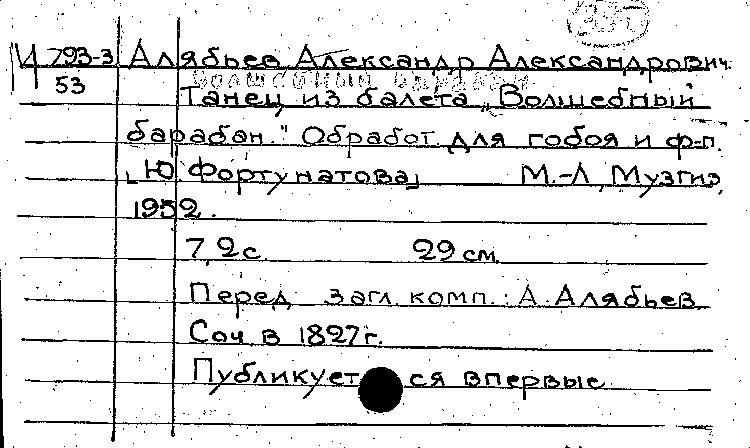 И 793-3 Алябьев Александр Александрович.
53
Волшебный барабан
Танец из балета „Волшебный
барабан." Обработ. для гобоя и ф-п.
[Ю Фортунатова] М.-Л, Музгиз,
1952.
7, 2 с. 29 см.
Перед загл. комп.: А. Алябьев.
Соч. в 1827 г.
Публикует ся впервые